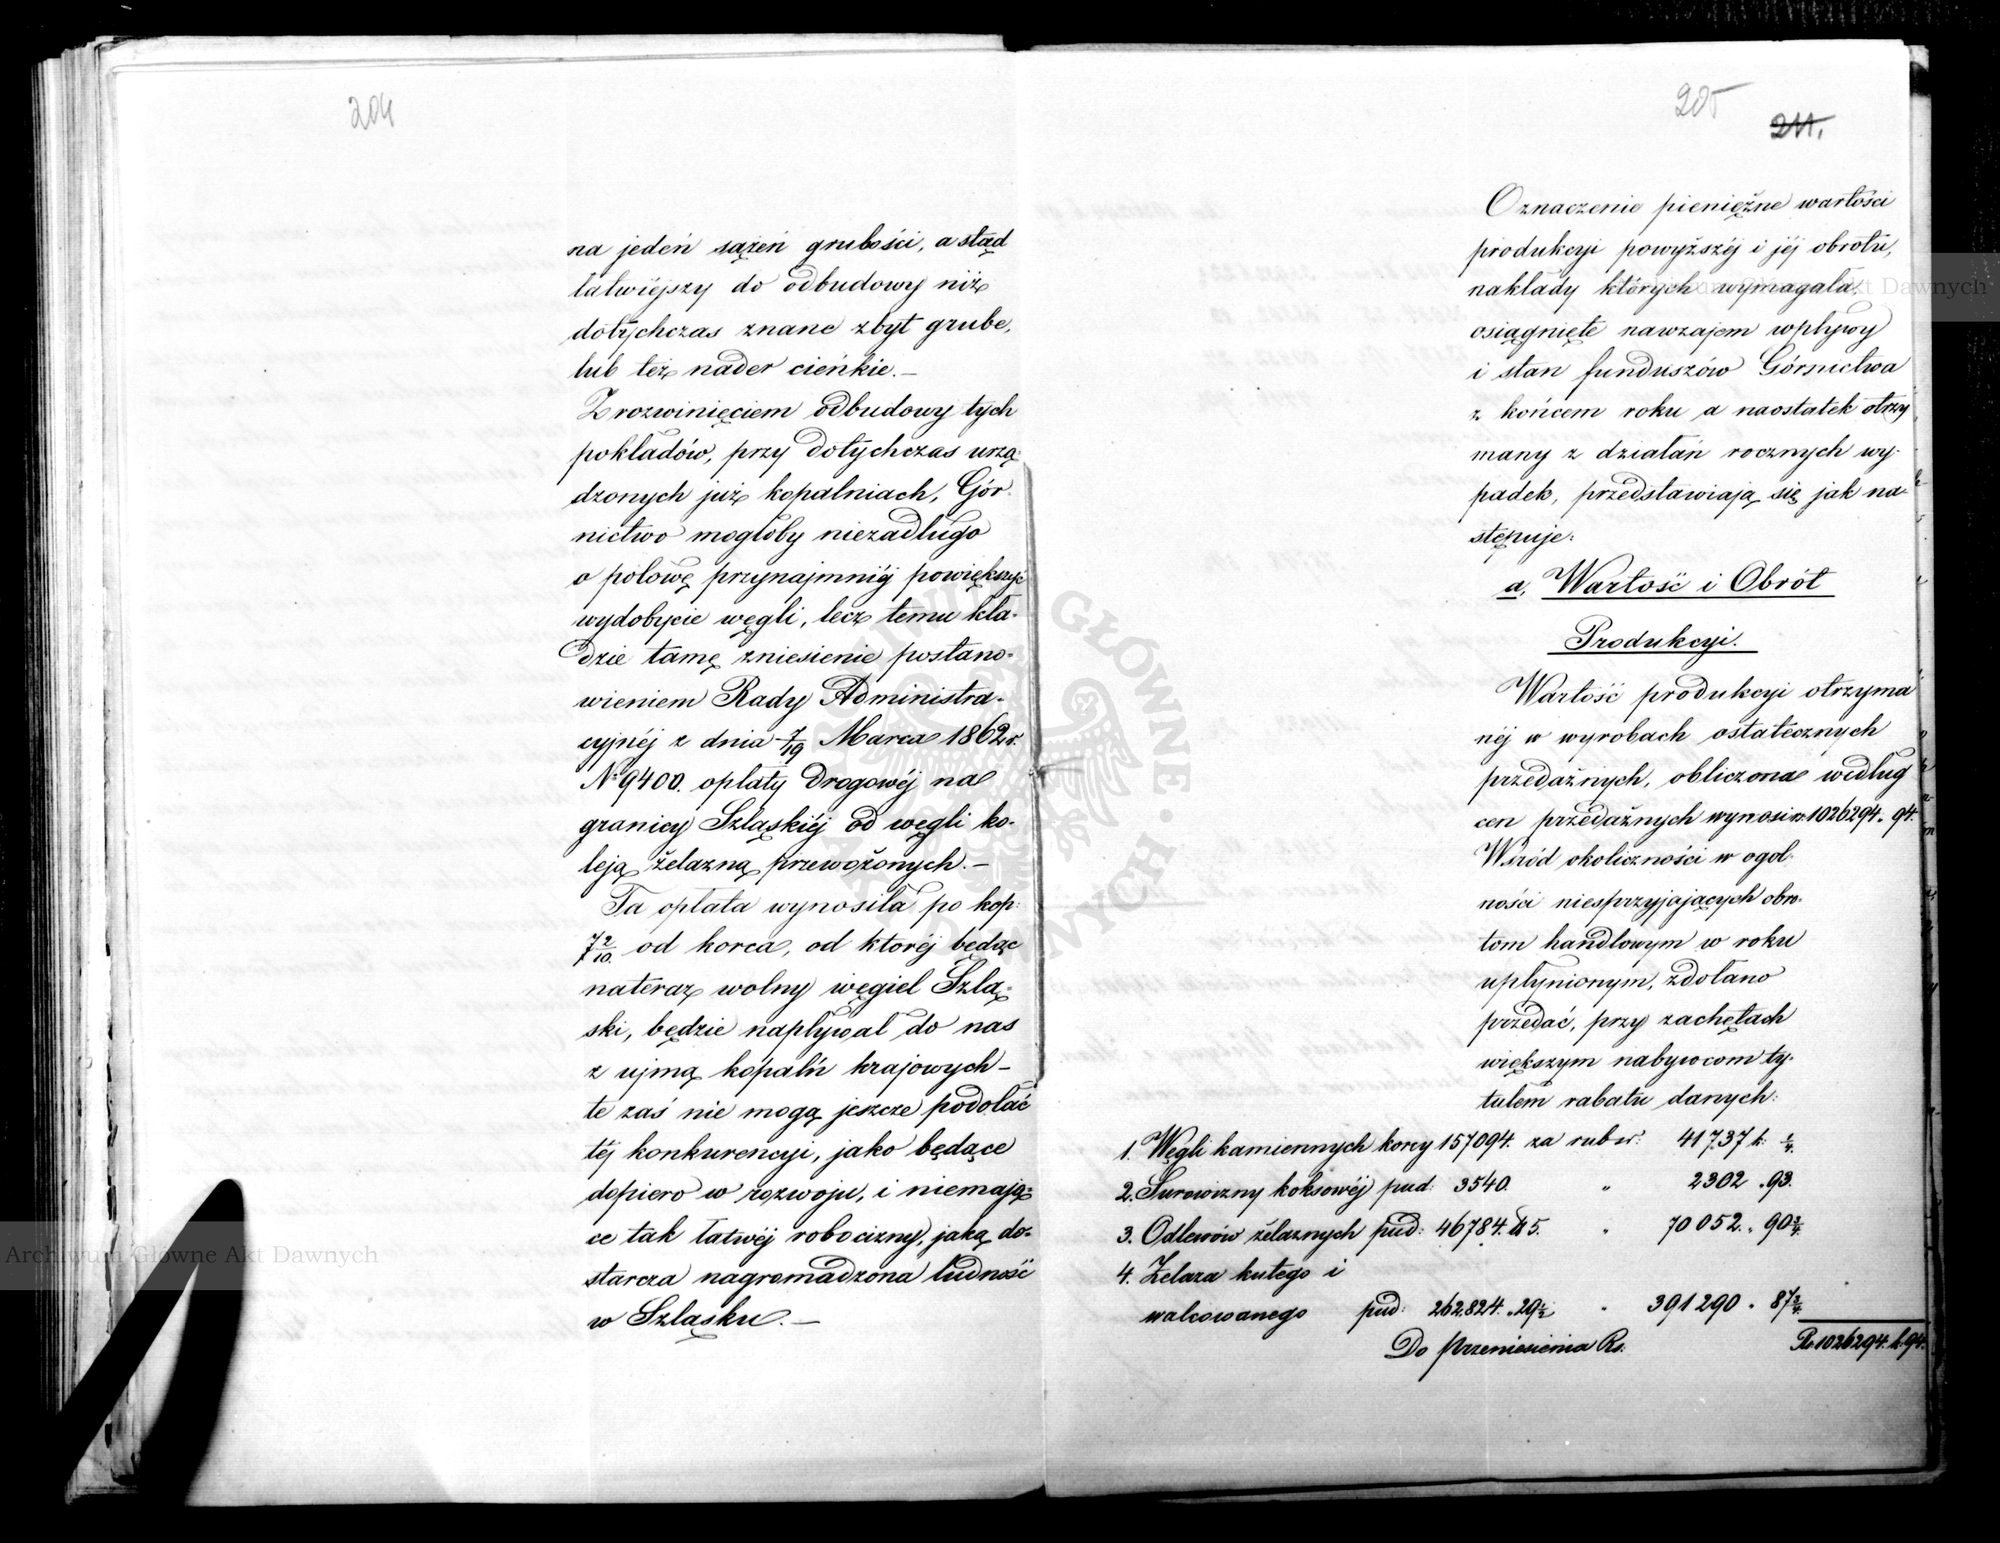 204
na jedeń sążeń grubości, a stąd
łatwiéjszy do odbudowy niż
dotychczas znane zbyt grube,
lub też nader cieńkie.—
Z rozwinięciem odbudowy tych
pokładów, przy dotychczas urzą-
dzonych już kopalniach, Gór-
nictwo mogłoby niezadługo
o połowę przynajmniéj powiększyć
wydobycie węgli, lecz temu kła-
dzie tamę zniesienie postano-
wieniem Rady Administra-
cyjnéj z dnia 7/19 Marca 1862 r.
N: 9400. opłaty drogowéj na
granicy Szląskiéj od węgli ko-
leją żelazną przewożonych.—
Ta opłata wynosiła po kop:
7 2/10. od korca, od któréj będąc
nateraz wolny węgiel Szlą-
ski, będzie napływał do nas
z ujmą kópalń krajowych—
te zaś nie mogą jeszcze podołać
téj konkurencyi, jako będące
dopiero w rozwoju, i niemają-
ce tak łatwéj robocizny, jaką do-
starcza nagromadzona ludność
w Szląsku.—
205
211.
Oznaczenie pieniężne wartości
produkcyi powyższéj i jéj obrotu,
nakłady których wymagała,
osiągnięte nawzajem wpływy
i stan funduszów Górnictwa
z końcem roku a naostatek otrzy
many z działań rocznych wy-
padek, przedstawiają się jak na-
stępuje:
a, Wartość i Obrót
Produkcyi.
Wartość produkcyi otrzyma
néj w wyrobach ostatecznych
przedażnych, obliczona według
cen przedażnych wynosi rs 1026294. 94.
Wśród okoliczności w ogól-
ności niesprzyjających obro-
tom handlowym w roku
upłynionym, zdołano
przedać, przy zachętach
większym nabywcom ty-
tułem rabatu danych:
1. Węgli kamiennych korcy 157094. za rub sr: 41737 k: 1/4.
2. Surowizny koksowéj pud: 3540. " 2302 . 93.
3. Odlewów żelaznych pud: 46784. ℔ 5. " 70052. " 90 3/4.
4. Żelaza kutego i
walcowanego pud: 262,824. " 29 1/2 " 391290 " 87 3/4.
Do przeniesienia Rs. Rs 1026294. k. 94.
Archiwum Główne Akt Dawnych